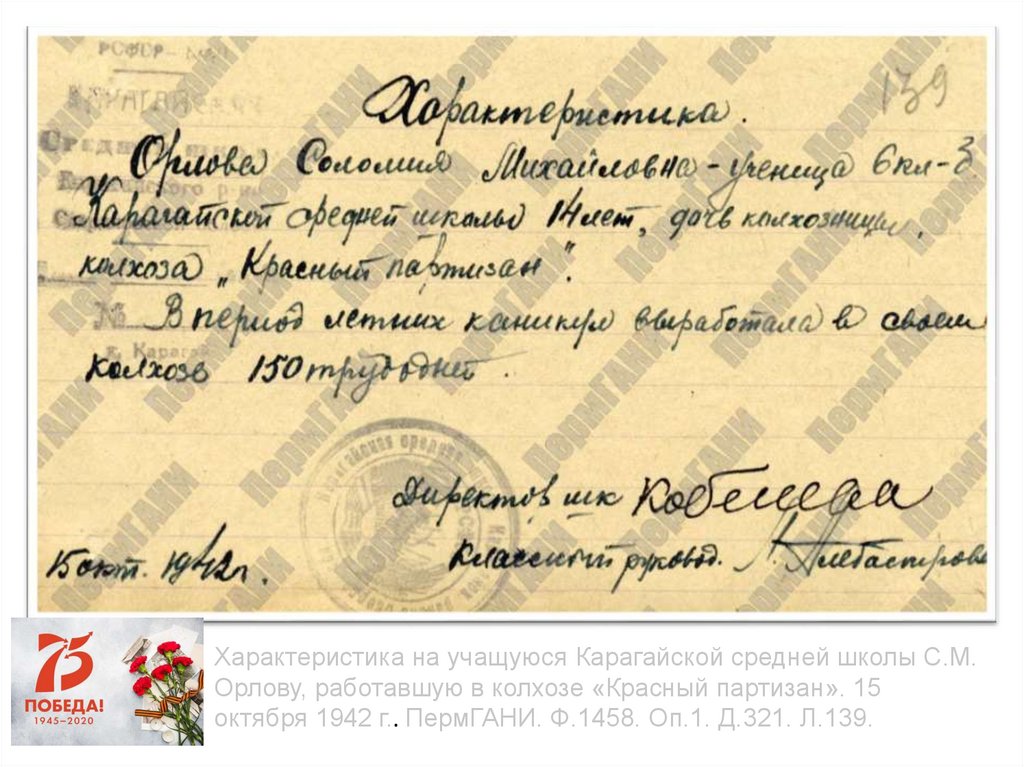 РСФСР
139
Характеристика.
Орлова Соломия Михайловна - ученица 6 кл - З.
Карагайской средней школы 14 лет, дочь колхозницы,
колхоза „Красный партизан".
№ В период летних каникул выработала в своем
г. Карагай
колхозе 150 трудодней.
Директор шк
15 окт. 1942 г. Классный руковод.
ПермГАНИ
75
ПОБЕДА!
1945–2020
Характеристика на учащуюся Карагайской средней школы С.М.
Орлову, работавшую в колхозе «Красный партизан». 15
октября 1942 г.. ПермГАНИ. Ф.1458. Оп.1. Д.321. Л.139.